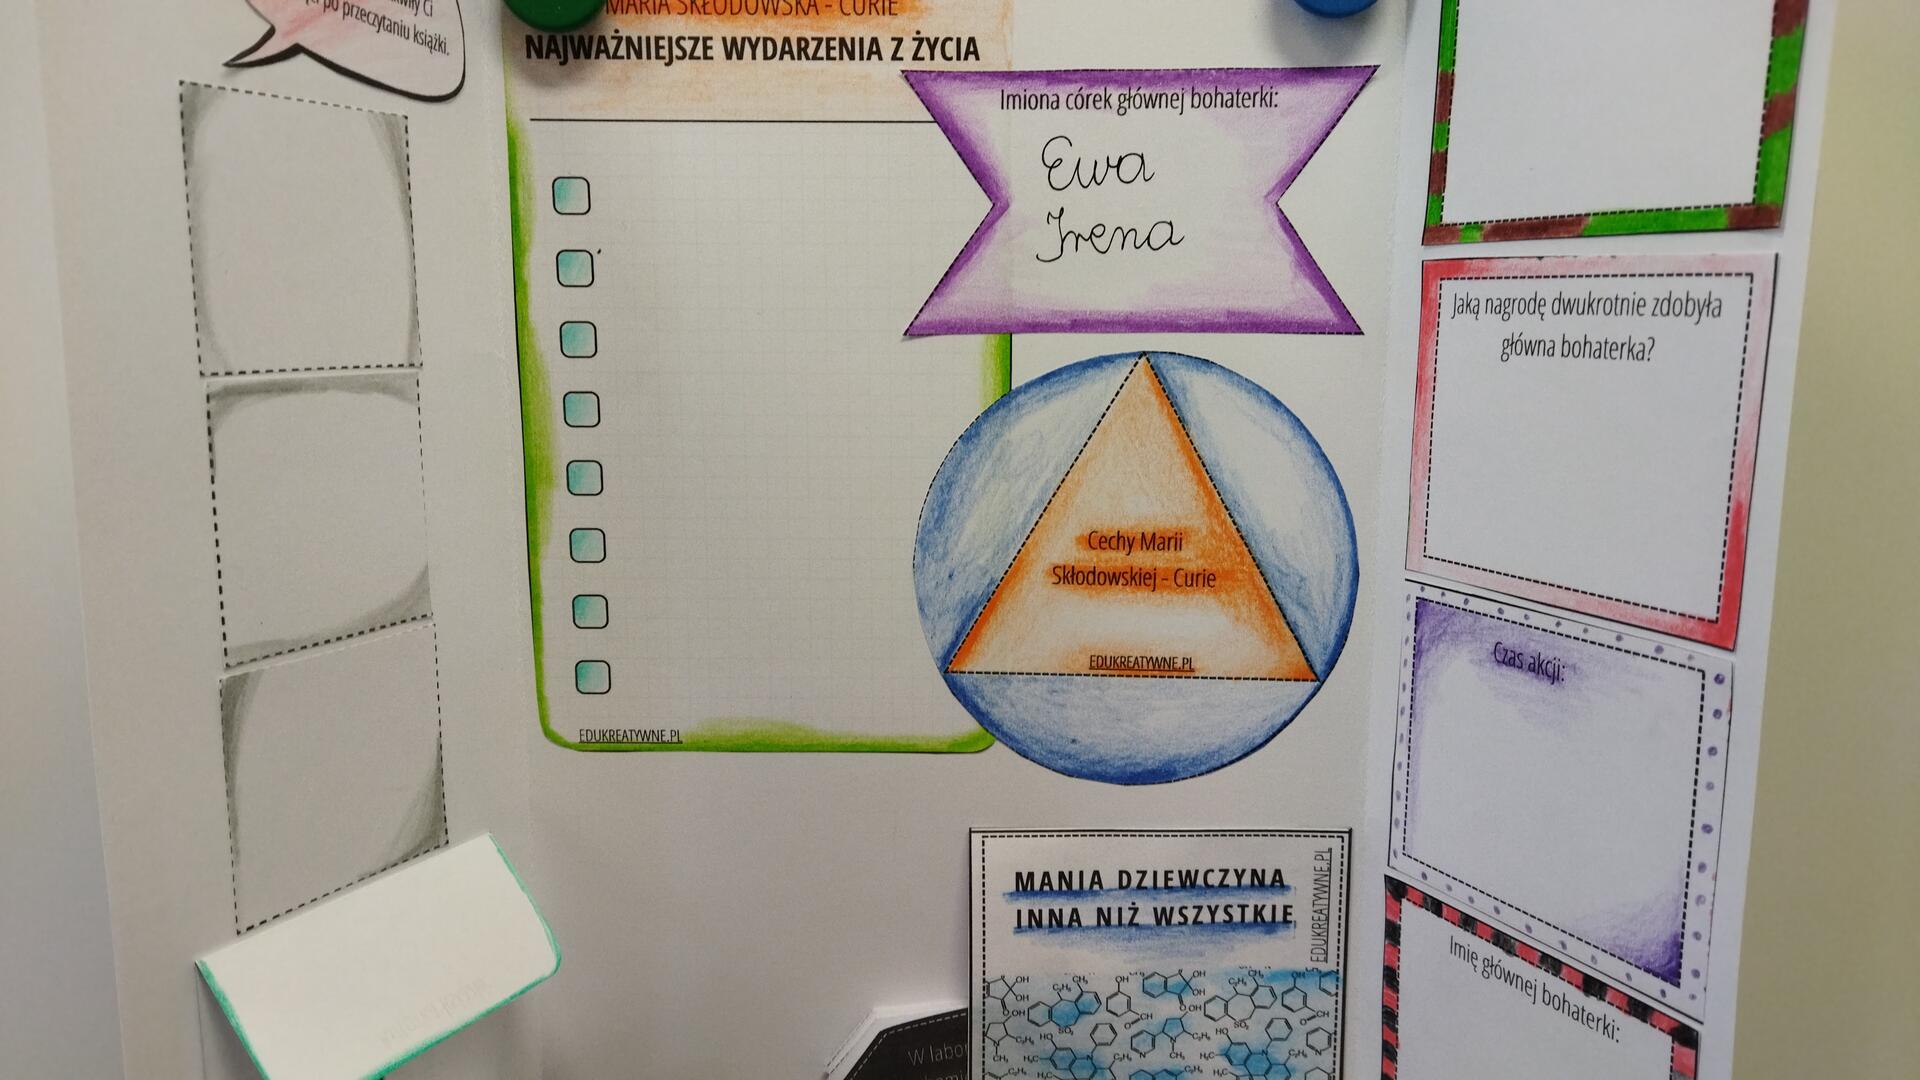 po przeczytaniu książki.
MARIA SKŁODOWSKA - CURIE
NAJWAŻNIEJSZE WYDARZENIA Z ŻYCIA
EDUKREATYWNE.PL
Imiona córek głównej bohaterki:
Ewa
Irena
Cechy Marii
Skłodowskiej - Curie
EDUKREATYWNE.PL
MANIA DZIEWCZYNA
INNA NIŻ WSZYSTKIE
EDUKREATYWNE.PL
W labor
Jaką nagrodę dwukrotnie zdobyła
główna bohaterka?
Czas akcji:
Imię głównej bohaterki: